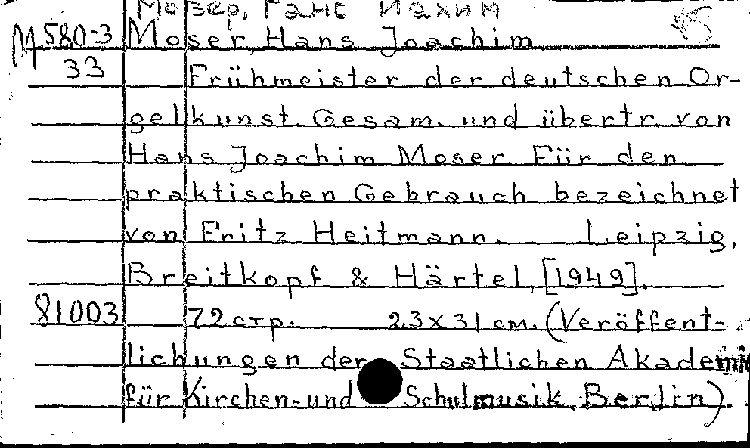 Мозер, Ганс Иахим
М 580-3 Moser, Hans Joachim
33 Frühmeister der deutschen Or-
gelkunst. Gesam. und übertr. von
Hans Joachim Moser. Für den
praktischen Gebrauch bezeichnet
von Fritz Heitmann. Leipzig,
Breitkopf & Härtel, [1949].
81003 72 стр. 23 x 31 см. (Veröffent-
lichungen der Staatlichen Akademie
für Kirchen- und Schulmusik Berlin).